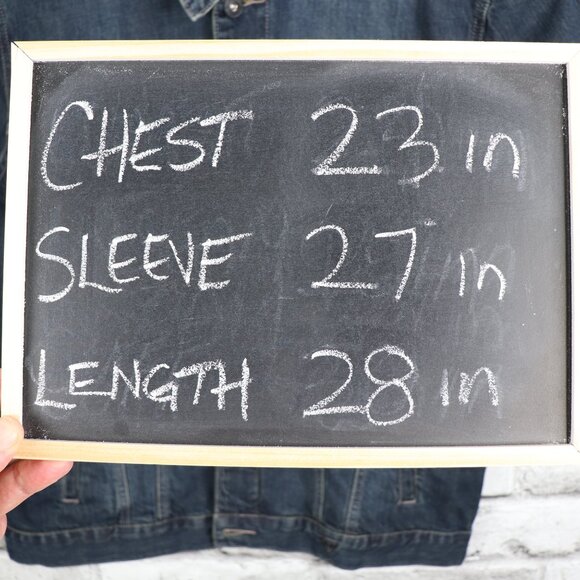 CHEST 23 in
SLEEVE 27 in
LENGTH 28 in